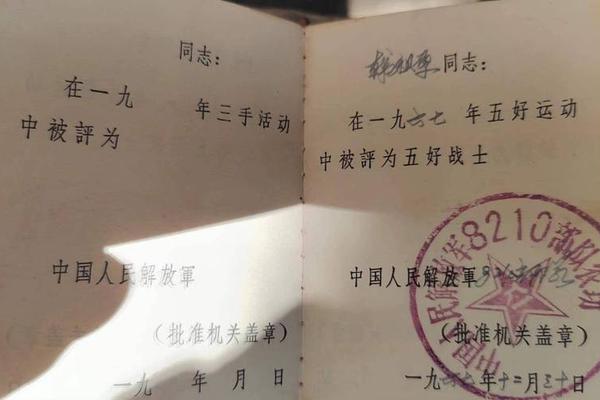 同志：
在一九 年三手活动
中被評为
中国人民解放軍
(批准机关盖章)
一九 年 月 日
同志：
在一九六七年五好运动
中被評为五好战士
中国人民解放軍
(批准机关盖章)
一九六七年十二月三十日
中国人民解放军8210部队